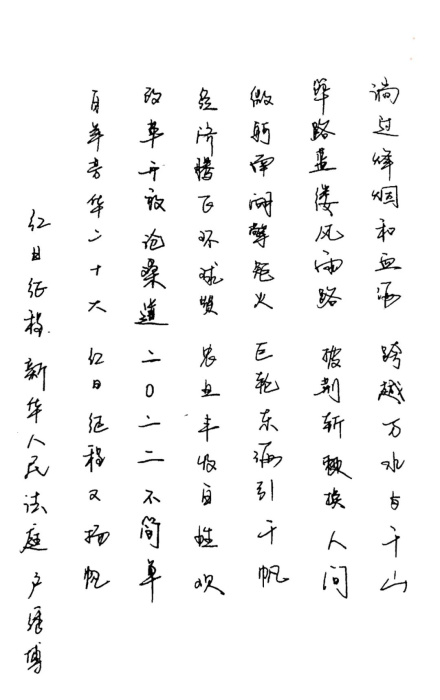 淌过烽烟和血海 跨越万水与千山
筚路蓝缕风雨路 披荆斩棘换人间
微舸南湖擎炬火 巨轮东海引千帆
经济腾飞环球赞 农业丰收百姓欢
改革开放沧桑道 二0二二不简单
百年芳华二十大 红日征程又扬帆
红日征程 新华人民法庭 博